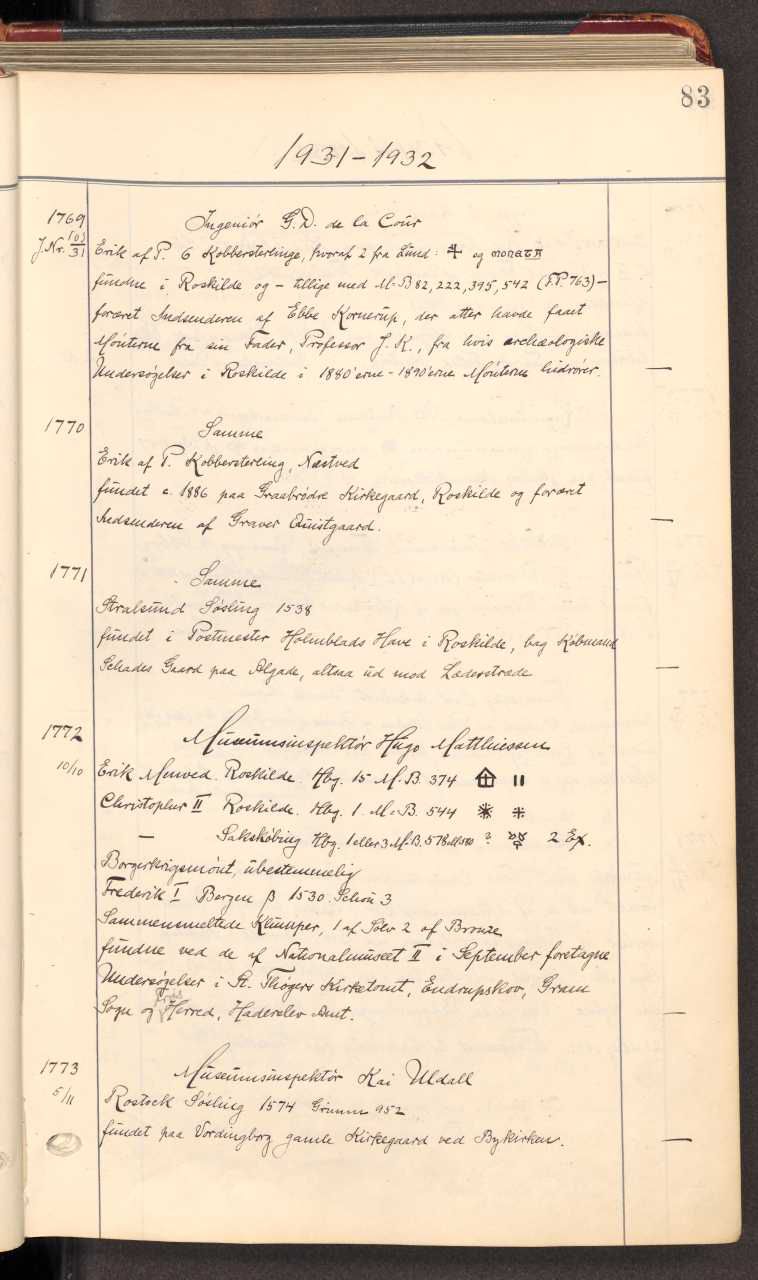 83
1931-1932
1769 Ingeniør G.D. de la Cour
J.Nr. 103/31 Erik af P. 6 Kobbersterlinge, hvoraf 2 fra Lund: og
fundne i Roskilde og - tillige med M-B 82, 222, 395, 542 (F.P. 763) -
foræret Indsenderen af Ebbe Kornerup, der atter havde faaet
Mønterne fra sin Fader, Professor J. K., fra hvis archæologiske
Undersøgelser i Roskilde i 1880'erne - 1890'erne Mønterne hidrører. —
1770 Samme
Erik af P. Kobbersterling, Næstved
fundet c. 1886 paa Graabrødre Kirkegaard, Roskilde og foræret
Indsenderen af Graver Quistgaard. —
1771 Samme
Stralsund Søsling 1538
fundet i Postmester Holmblads Have i Roskilde, bag Købmand
Schades Gaard paa Algade, altsaa ud mod Læderstræde —
1772 Museumsinspektør Hugo Matthiessen
10/10 Erik Menved. Roskilde. Hbg. 15 M-B. 374
Christopher II Roskilde. Hbg. 1 M-B. 544
— Sakskøbing Hbg. 1 eller 3 M-B. 578 ell. 580 ? 2 Ex.
Borgerkrigsmønt, ubestemmelig
Frederik I Bergen β 1530. Schou 3
Sammensmeltede Klumper, 1 af Sølv 2 af Bronze
fundne ved de af Nationalmuseet II i September foretagne
Undersøgelser i St. Thøgers Kirketomt, Endrupskov, Gram
Sogn og Frøs Herred, Haderslev Amt. —
1773 Museumsinspektør Kai Uldall
5/11 Rostock Søsling 1574 Grimm 952
fundet paa Vordingborg gamle Kirkegaard ved Bykirken. —